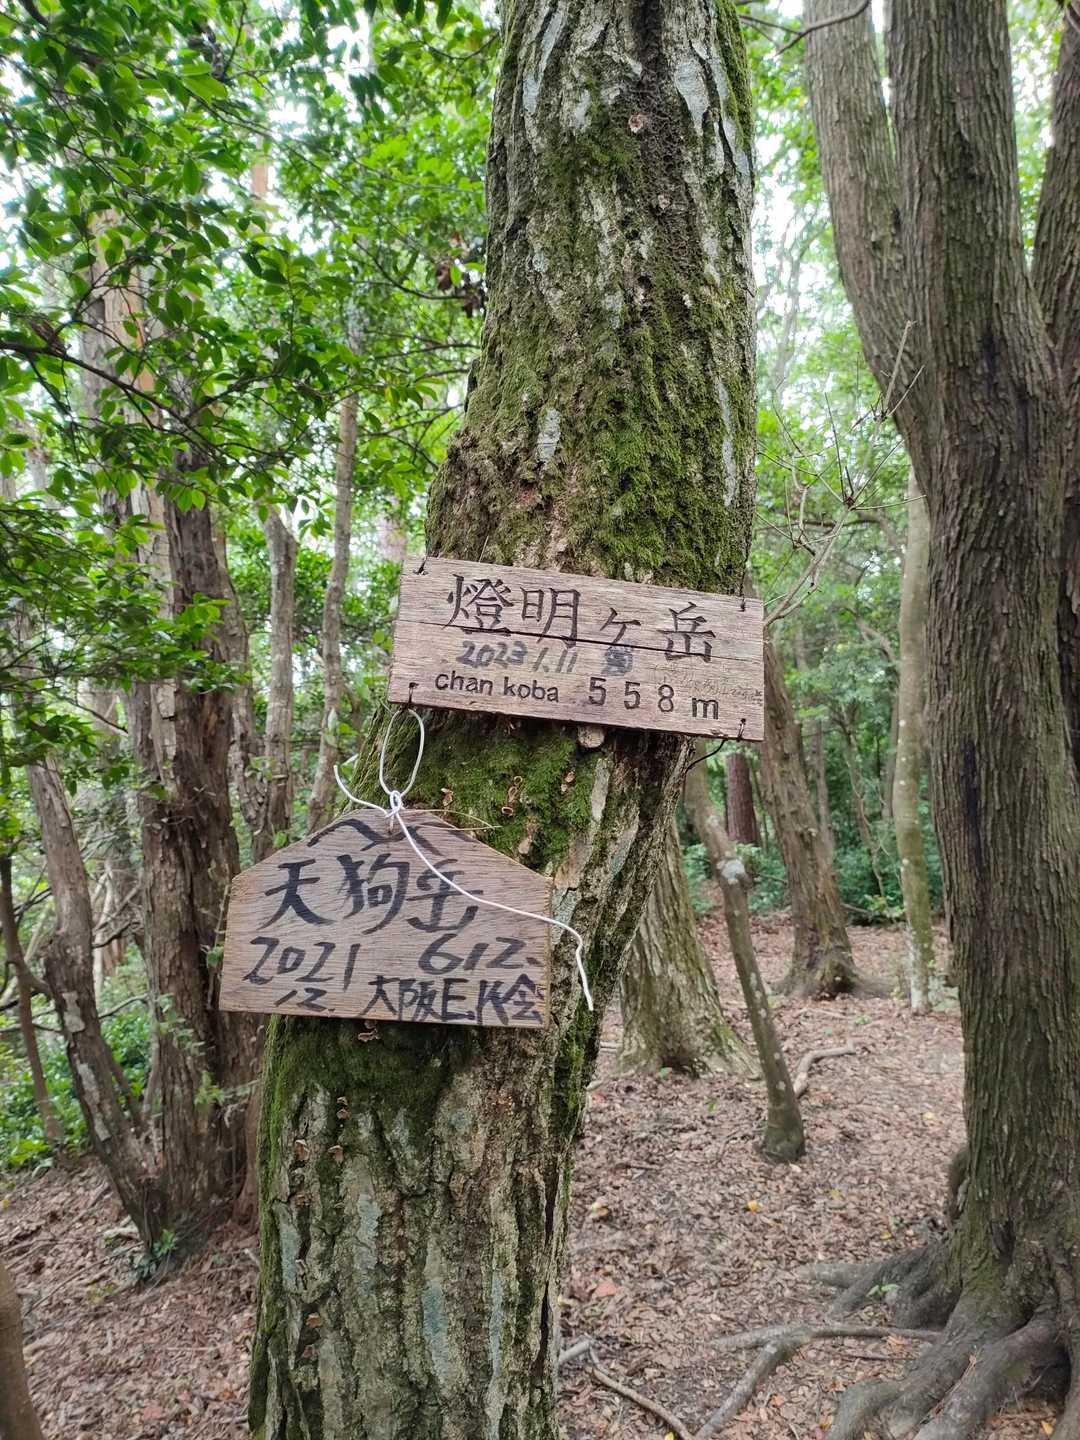 燈明ヶ岳
2023 1.11
chan koba 558m
天狗岳
2021 6.12.
12. 大阪E.K会